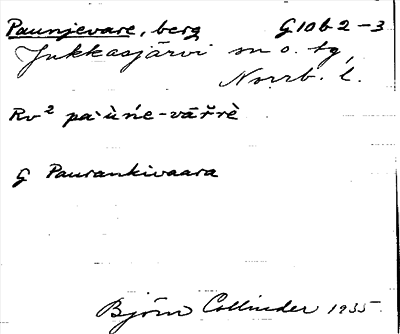 Paunjevare, berg G10b2-3
Jukkasjärvi sn o. tg,
Norrb. l.
Rv² pa·ùńe-vāřrè
G Paurankivaara
Björn Collinder 1935.